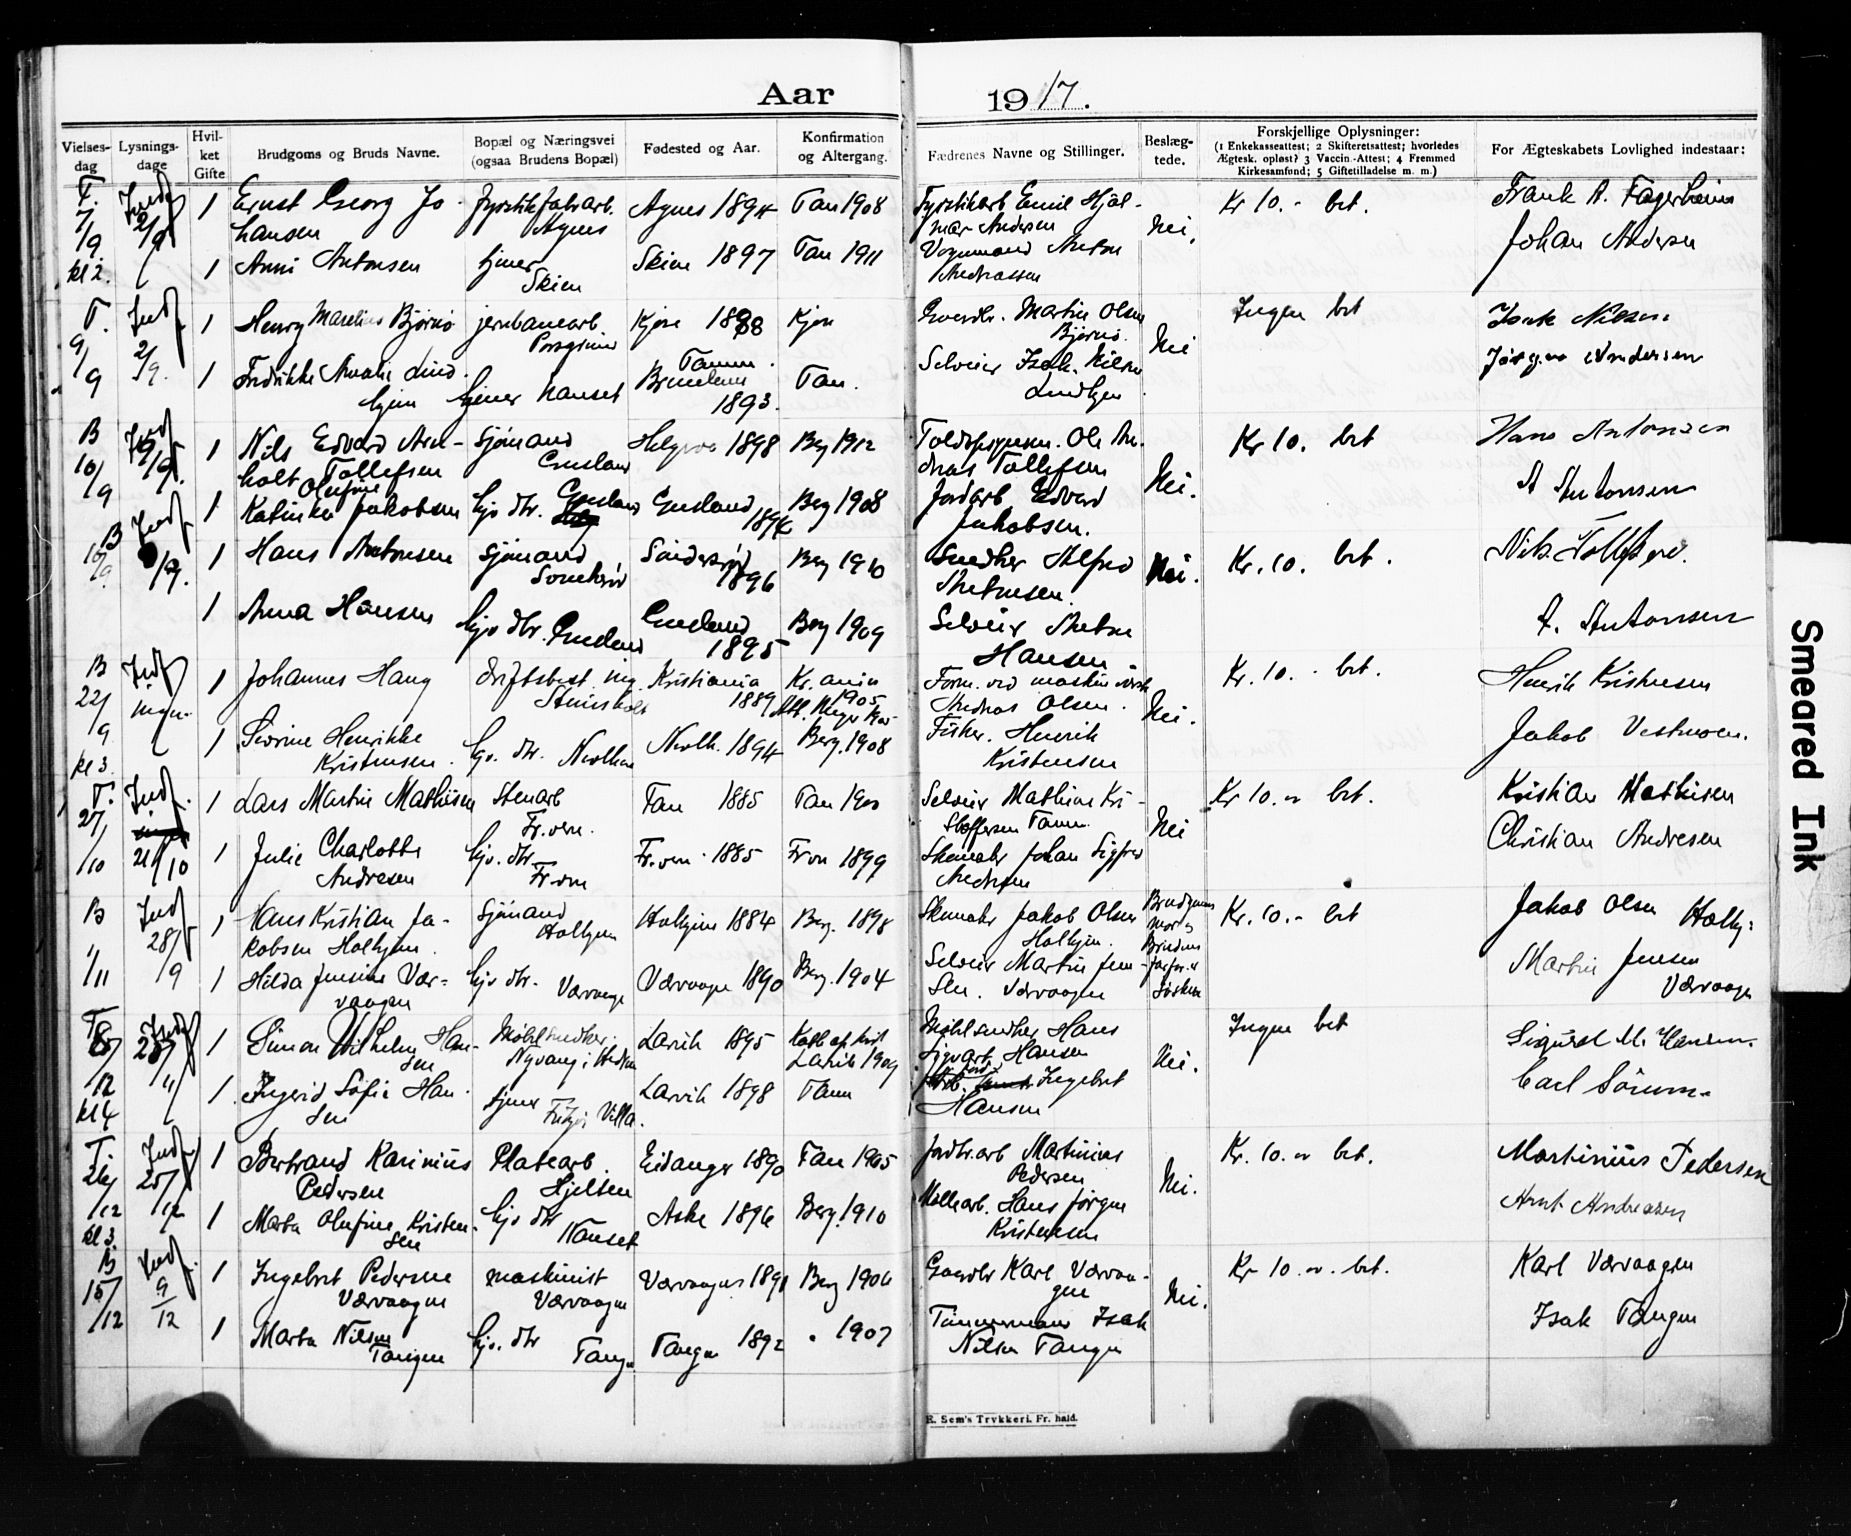 Aar 1917.
Vielses-dag
Lysnings-dage
Hvil-ket Gifte
Brudgoms og Bruds Navne.
Bopæl og Næringsvei (ogsaa Brudens Bopæl)
Fødested og Aar.
Konfirmation og Altergang.
Fædrenes Navne og Stillinger.
Beslæg-tede.
Forskjellige Oplysninger:
(1 Enkekasseattest; 2 Skifteretsattest; hvorledes
Ægtesk. opløst? 3 Vaccin.-Attest; 4 Fremmed
Kirkesamfund; 5 Giftetilladelse m. m.)
For Ægteskabets Lovlighed indestaar:
T. 7/9 kl 2. 2/9 1 Ernst Georg Johansen Agnes Agnes 1894 Tan 1908 Emil Hjalmar Andersen Nei. Kr 10.- bet. Frank A. Fagerheim
1 Anni Antonsen tjener Skien Skien 1897 Tan 1911 Anton Andreassen Johan Andersen
T. 9/9 2/9. 1 Henry Marelius Bjørnø jernbanearb. Porsgrund Kjose 1888 Kjose Gaardbr. Martin Olsen Bjørnø. Nei Ingen bet Isak Nilsen
1 Fredrikke Amalie Lindhjem tjener Nanset Tanum Brunlanes 1893. Tan. Selveier Isak Nilsen Lindhjem Jørgen Andersen
B 10/9 1 Nils Edvard Arnholt Tollefsen Sjømand Gusland Helgeroa 1898 Berg 1912 Ole Andreas Tollefsen Nei. Kr 10. bet Hans Antonsen
1 Katinka Olufine Jakobsen hjv dtr. Gusland Gusland 1894 Berg 1908 Jordarb Edvard Jakobsen. A Antonsen
B 10/9. 1 Hans Antonsen Sjømand Sønderrød 1896 Berg 1910 Snedker Alfred Antonsen. Nei. Kr. 10. bet. Nils Tollefsen.
1 Anna Hansen hjv dtr. Gusland Gusland 1895 Berg 1909 Selveier Anton Hansen A. Antonsen
B 22/9 kl 3. 1 Johannes Haug driftsbest. ing. Kristiania 1889 Kr.ania 1905 Andreas Olsen. Nei. Kr. 10. - bet. Henrik Kristensen
1 Sverine Henrikke Kristensen. hjv. dtr. Nevlh. 1894 Berg. 1908 Fisker. Henrik Kristensen Jakob
T. 27/10 21/10 1 Lars Martin Mathisen Stenarb Fr.vern. Tan 1885 Tan 1900 Selveier Mathias Kristoffersen Tanum. Nei Kr 10.- bet. Kristian Mathisen
1 Julie Charlotte Andresen hjv. dtr. Fr.vern Fr.vern 1885 Frvn 1899 Skomaker Johan Sigfred Andresen Christian Andresen
B 1/11 28/9 1 Hans Kristian Jakobsen Holhjem. Sjømand Holhjem Holhjem 1884 Berg. 1898 Skomaker Jakob Olsen Holhjem. Brudgommens mor og Brudens farfar er Søsken Kr. 10.- bet Jakob Olsen Holhj:
1 Hilda Jensine Værvaagen hjv dtr. Værvaagen Værvaagen 1890 Berg. 1904 Selveier Martin Jensen. Værvaagen Martin Jensen Værvaagen
T. 12 kl 4 1 Simon Wilhelm Hansen Møbelsnedker. Larvik 1895 Larvik 1909 Møbelsnedker Hans Sigvart Hansen Nei. Ingen bet Sigurd M. Hansen
1. Ingrid Sofie Hansen tjener Larvik 1898 Tanum Ingebret Hansen Carl Sörum.
T. 26/12 kl 3. 25/12 1 Bertrand Karinius Pedersen Platearb. Hjelten Eidanger 1890 Tan 1905 Jordbr.arb Martinius Pedersen Nei. Kr. 10.- bet. Martinius Pedersen
1 Marta Olufine Kristensen hjv dtr Nanset Aske 1896 Berg. 1910 Møllearb. Hans Jørgen Kristensen Arnt Andreasen
B 15/12 9/12 1 Ingebret Pedersen Værvaagen maskinist Værvaagen Værvaagen 1891 Berg 1906 Gaardbr Karl Værvaagen Nei. Kr 10.- bet. Karl Værvaagen
1 Marta Nilsen Tangen hjv. dtr Tangen Tangen 1892 " 1907 Tømmermann Isak Nilsen Tangen Isak Tangen
E. Sem's Trykkeri. Fr. hald.
Smeared Ink